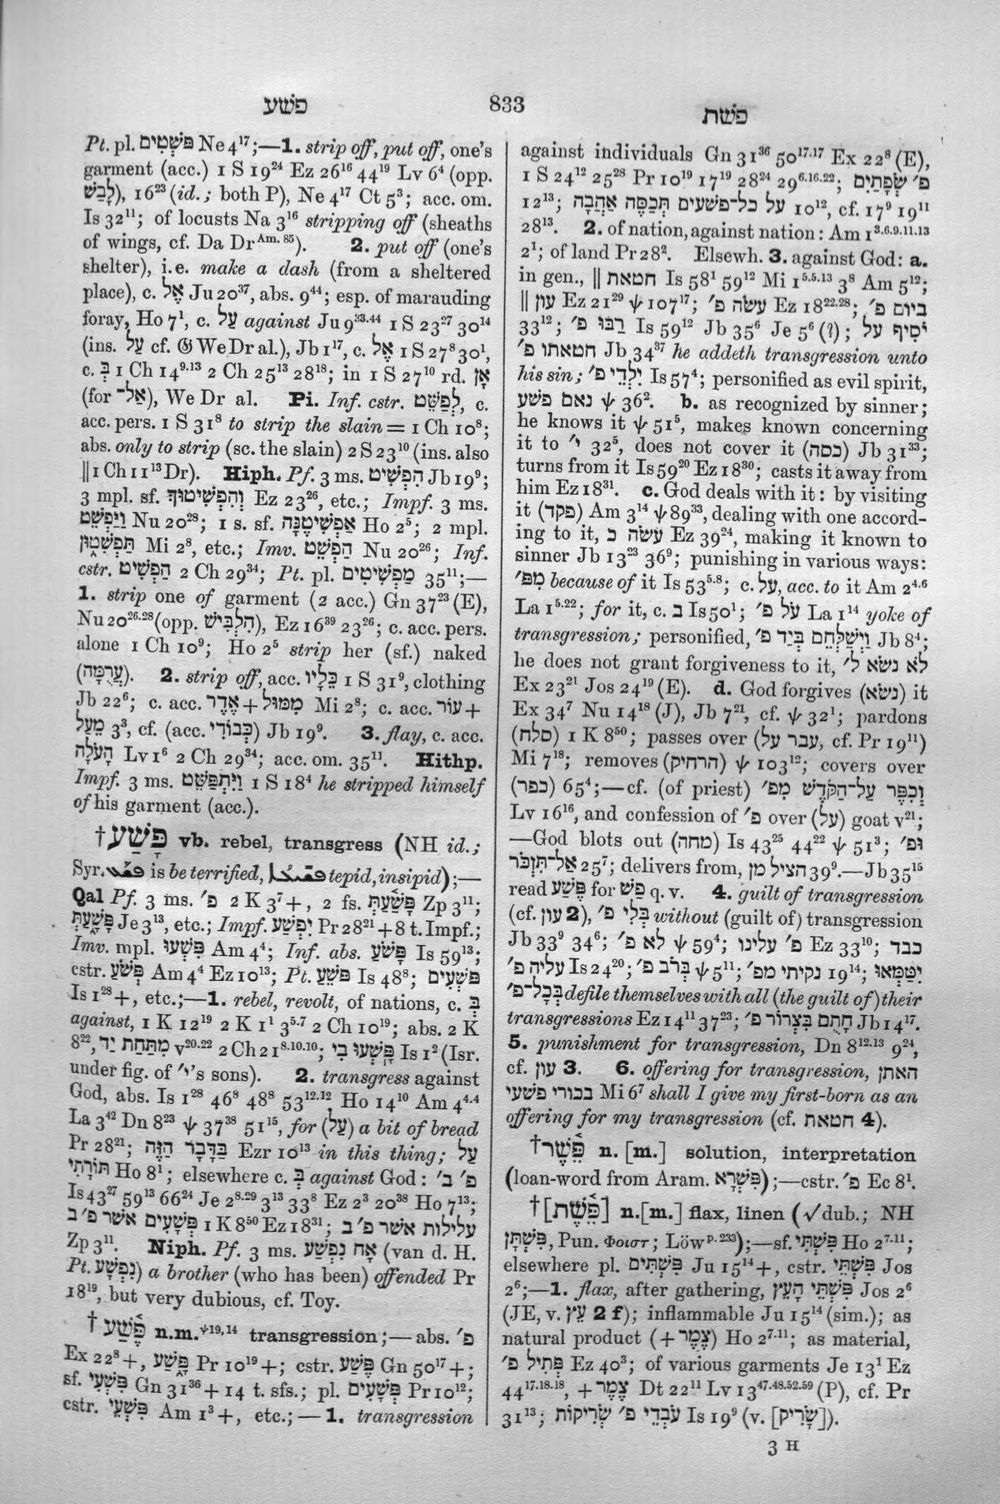 פשע
833
פשת
Pt. pl. פֹּשְׁטִים Ne 4¹⁷;—1. strip off, put off, one's
garment (acc.) 1 S 19²⁴ Ez 26¹⁶ 44¹⁹ Lv 6⁴ (opp.
לָבַשׁ), 16²³ (id.; both P), Ne 4¹⁷ Ct 5³; acc. om.
Is 32¹¹; of locusts Na 3¹⁶ stripping off (sheaths
of wings, cf. Da Dr Am. 85). 2. put off (one's
shelter), i.e. make a dash (from a sheltered
place), c. אֶל Ju 20³⁷, abs. 9⁴⁴; esp. of marauding
foray, Ho 7¹, c. עַל against Ju 9³³·⁴⁴ 1 S 23²⁷ 30¹⁴
(ins. עַל cf. 𝔊 We Dr al.), Jb 1¹⁷, c. אֶל 1 S 27⁸ 30¹,
c. בְּ 1 Ch 14⁹·¹³ 2 Ch 25¹³ 28¹⁸; in 1 S 27¹⁰ rd. אָן
(for אֶל־), We Dr al. Pi. Inf. cstr. לְפַשֵּׁט, c.
acc. pers. 1 S 31⁸ to strip the slain = 1 Ch 10⁸;
abs. only to strip (sc. the slain) 2 S 23¹⁰ (ins. also
‖ 1 Ch 11¹³ Dr). Hiph. Pf. 3 ms. הִפְשִׁיט Jb 19⁹;
3 mpl. sf. וְהִפְשִׁיטוּךְ Ez 23²⁶, etc.; Impf. 3 ms.
וַיַּפְשֵׁט Nu 20²⁸; 1 s. sf. אַפְשִׁיטֶנָּה Ho 2⁵; 2 mpl.
תַּפְשִׁטוּן Mi 2⁸, etc.; Imv. הַפְשֵׁט Nu 20²⁶; Inf.
cstr. הַפְשִׁיט 2 Ch 29³⁴; Pt. pl. מַפְשִׁיטִים 35¹¹;—
1. strip one of garment (2 acc.) Gn 37²³ (E),
Nu 20²⁶·²⁸ (opp. הִלְבִּישׁ), Ez 16³⁹ 23²⁶; c. acc. pers.
alone 1 Ch 10⁹; Ho 2⁵ strip her (sf.) naked
(עֲרֻמָּה). 2. strip off, acc. כֵּלָיו 1 S 31⁹, clothing
Jb 22⁶; c. acc. אֶדֶר + מִמּוּל Mi 2⁸; c. acc. עוֹר +
מֵעַל 3³, cf. (acc. כְּבוֹדִי) Jb 19⁹. 3. flay, c. acc.
הָעֹלָה Lv 1⁶ 2 Ch 29³⁴; acc. om. 35¹¹. Hithp.
Impf. 3 ms. וַיִּתְפַּשֵּׁט 1 S 18⁴ he stripped himself
of his garment (acc.).
†פָּשַׁע vb. rebel, transgress (NH id.;
Syr. is be terrified, tepid, insipid);—
Qal Pf. 3 ms. פ׳ 2 K 3⁷ +, 2 fs. פָּשַׁעַתְּ Zp 3¹¹;
פָּשָׁעַתְּ Je 3¹³, etc.; Impf. יִפְשַׁע Pr 28²¹ + 8 t. Impf.;
Imv. mpl. פִּשְׁעוּ Am 4⁴; Inf. abs. פָּשֹׁעַ Is 59¹³;
cstr. פְּשֹׁעַ Am 4⁴ Ez 10¹³; Pt. פֹּשֵׁעַ Is 48⁸; פֹּשְׁעִים
Is 1²⁸ +, etc.;—1. rebel, revolt, of nations, c. בְּ
against, 1 K 12¹⁹ 2 K 1¹ 3⁵·⁷ 2 Ch 10¹⁹; abs. 2 K
8²², מִתַּחַת יַד v²⁰·²² 2 Ch 21⁸·¹⁰·¹⁰; פָּשְׁעוּ בִי Is 1² (Isr.
under fig. of י׳'s sons). 2. transgress against
God, abs. Is 1²⁸ 46⁸ 48⁸ 53¹²·¹² Ho 14¹⁰ Am 4⁴·⁴
La 3⁴² Dn 8²³ ψ 37³⁸ 51¹⁵, for (עַל) a bit of bread
Pr 28²¹; בַּדָּבָר הַזֶּה Ezr 10¹³ in this thing; עַל
תּוֹרָתִי Ho 8¹; elsewhere c. בְּ against God: פ׳ ב׳
Is 43²⁷ 59¹³ 66²⁴ Je 2⁸·²⁹ 3¹³ 33⁸ Ez 2³ 20³⁸ Ho 7¹³;
פְּשָׁעִים אשר פ׳ ב 1 K 8⁵⁰ Ez 18³¹; עלילות אשר פ׳ ב
Zp 3¹¹. Niph. Pf. 3 ms. אָח נִפְשָׁע (van d. H.
Pt. נִפְשָׁע) a brother (who has been) offended Pr
18¹⁹, but very dubious, cf. Toy.
†פֶּ֫שַׁע n.m. ψ 19, 14 transgression;—abs. פ׳
Ex 22⁸ +, פָּשַׁע Pr 10¹⁹ +; cstr. פֶּשַׁע Gn 50¹⁷ +;
sf. פִּשְׁעִי Gn 31³⁶ + 14 t. sfs.; pl. פְּשָׁעִים Pr 10¹²;
cstr. פִּשְׁעֵי Am 1³ +, etc.;—1. transgression
against individuals Gn 31³⁶ 50¹⁷·¹⁷ Ex 22⁸ (E),
1 S 24¹² 25²⁸ Pr 10¹⁹ 17¹⁹ 28²⁴ 29⁶·¹⁶·²²; פ׳ שְׂפָתַיִם
12¹³; על כל־פשעים תְּכַסֶּה אַהֲבָה 10¹², cf. 17⁹ 19¹¹
28¹³. 2. of nation, against nation: Am 1³·⁶·⁹·¹¹·¹³
2¹; of land Pr 28². Elsewh. 3. against God: a.
in gen., ‖ חטאת Is 58¹ 59¹² Mi 1⁵·⁵·¹³ 3⁸ Am 5¹²;
‖ עון Ez 21²⁹ ψ 107¹⁷; עשׂה פ׳ Ez 18²²·²⁸; ביום פ׳
33¹²; רַבּוּ פ׳ Is 59¹² Jb 35⁶ Je 5⁶ (?); יֹסִיף על
חטאתו פ׳ Jb 34³⁷ he addeth transgression unto
his sin; יִלְדֵי פ׳ Is 57⁴; personified as evil spirit,
נאם פשע ψ 36². b. as recognized by sinner;
he knows it ψ 51⁵, makes known concerning
it to י׳ 32⁵, does not cover it (כסה) Jb 31³³;
turns from it Is 59²⁰ Ez 18³⁰; casts it away from
him Ez 18³¹. c. God deals with it: by visiting
it (פקד) Am 3¹⁴ ψ 89³³, dealing with one accord-
ing to it, עשׂה כ Ez 39²⁴, making it known to
sinner Jb 13²³ 36⁹; punishing in various ways:
מפ׳ because of it Is 53⁵·⁸; c. על, acc. to it Am 2⁴·⁶
La 1⁵·²²; for it, c. ב Is 50¹; עֹל פ׳ La 1¹⁴ yoke of
transgression; personified, וַיְשַׁלְּחֵם בְּיַד פ׳ Jb 8⁴;
he does not grant forgiveness to it, לֹא נשׂא ל׳
Ex 23²¹ Jos 24¹⁹ (E). d. God forgives (נשׂא) it
Ex 34⁷ Nu 14¹⁸ (J), Jb 7²¹, cf. ψ 32¹; pardons
(סלח) 1 K 8⁵⁰; passes over (עבר על, cf. Pr 19¹¹)
Mi 7¹⁸; removes (הרחיק) ψ 103¹²; covers over
(כפר) 65⁴;—cf. (of priest) וְכִפֶּר עַל־הַקֹּדֶשׁ מִפ׳
Lv 16¹⁶, and confession of פ׳ over (על) goat v²¹;
—God blots out (מחה) Is 43²⁵ 44²² ψ 51³; וּפ׳
אַל־תִּזְכֹּר 25⁷; delivers from, הציל מן 39⁹.—Jb 35¹⁵
read פֶּשַׁע for פַּשׁ q. v. 4. guilt of transgression
(cf. עון 2), בְּלִי פ׳ without (guilt of) transgression
Jb 33⁹ 34⁶; לא פ׳ ψ 59⁴; פ׳ עלינו Ez 33¹⁰; כבד
עליה פ׳ Is 24²⁰; בְּרֹב פ׳ ψ 5¹¹; נקיתי מפ׳ 19¹⁴; יִטַּמְּאוּ
בְּכָל־פ׳ defile themselves with all (the guilt of) their
transgressions Ez 14¹¹ 37²³; חָתֻם בִּצְרוֹר פ׳ Jb 14¹⁷.
5. punishment for transgression, Dn 8¹²·¹³ 9²⁴,
cf. עון 3. 6. offering for transgression, האתן
בכורי פשעי Mi 6⁷ shall I give my first-born as an
offering for my transgression (cf. חטאת 4).
†פֵּ֫שֶׁר n. [m.] solution, interpretation
(loan-word from Aram. פִּשְׁרָא);—cstr. פ׳ Ec 8¹.
†[פֵּ֫שֶׁת] n.[m.] flax, linen (√dub.; NH
פִּשְׁתָּן, Pun. Φοιστ; Löw p. 233);—sf. פִּשְׁתִּי Ho 2⁷·¹¹;
elsewhere pl. פִּשְׁתִּים Ju 15¹⁴ +, cstr. פִּשְׁתֵּי Jos
2⁶;—1. flax, after gathering, פִּשְׁתֵּי הָעֵץ Jos 2⁶
(JE, v. עֵץ 2 f); inflammable Ju 15¹⁴ (sim.); as
natural product (+ צֶמֶר) Ho 2⁷·¹¹; as material,
פְּתִיל פ׳ Ez 40³; of various garments Je 13¹ Ez
44¹⁷·¹⁸·¹⁸, + צֶמֶר Dt 22¹¹ Lv 13⁴⁷·⁴⁸·⁵²·⁵⁹ (P), cf. Pr
31¹³; עֹבְדֵי פ׳ שְׂרִיקוֹת Is 19⁹ (v. [שָׂרִיק]).
3 H